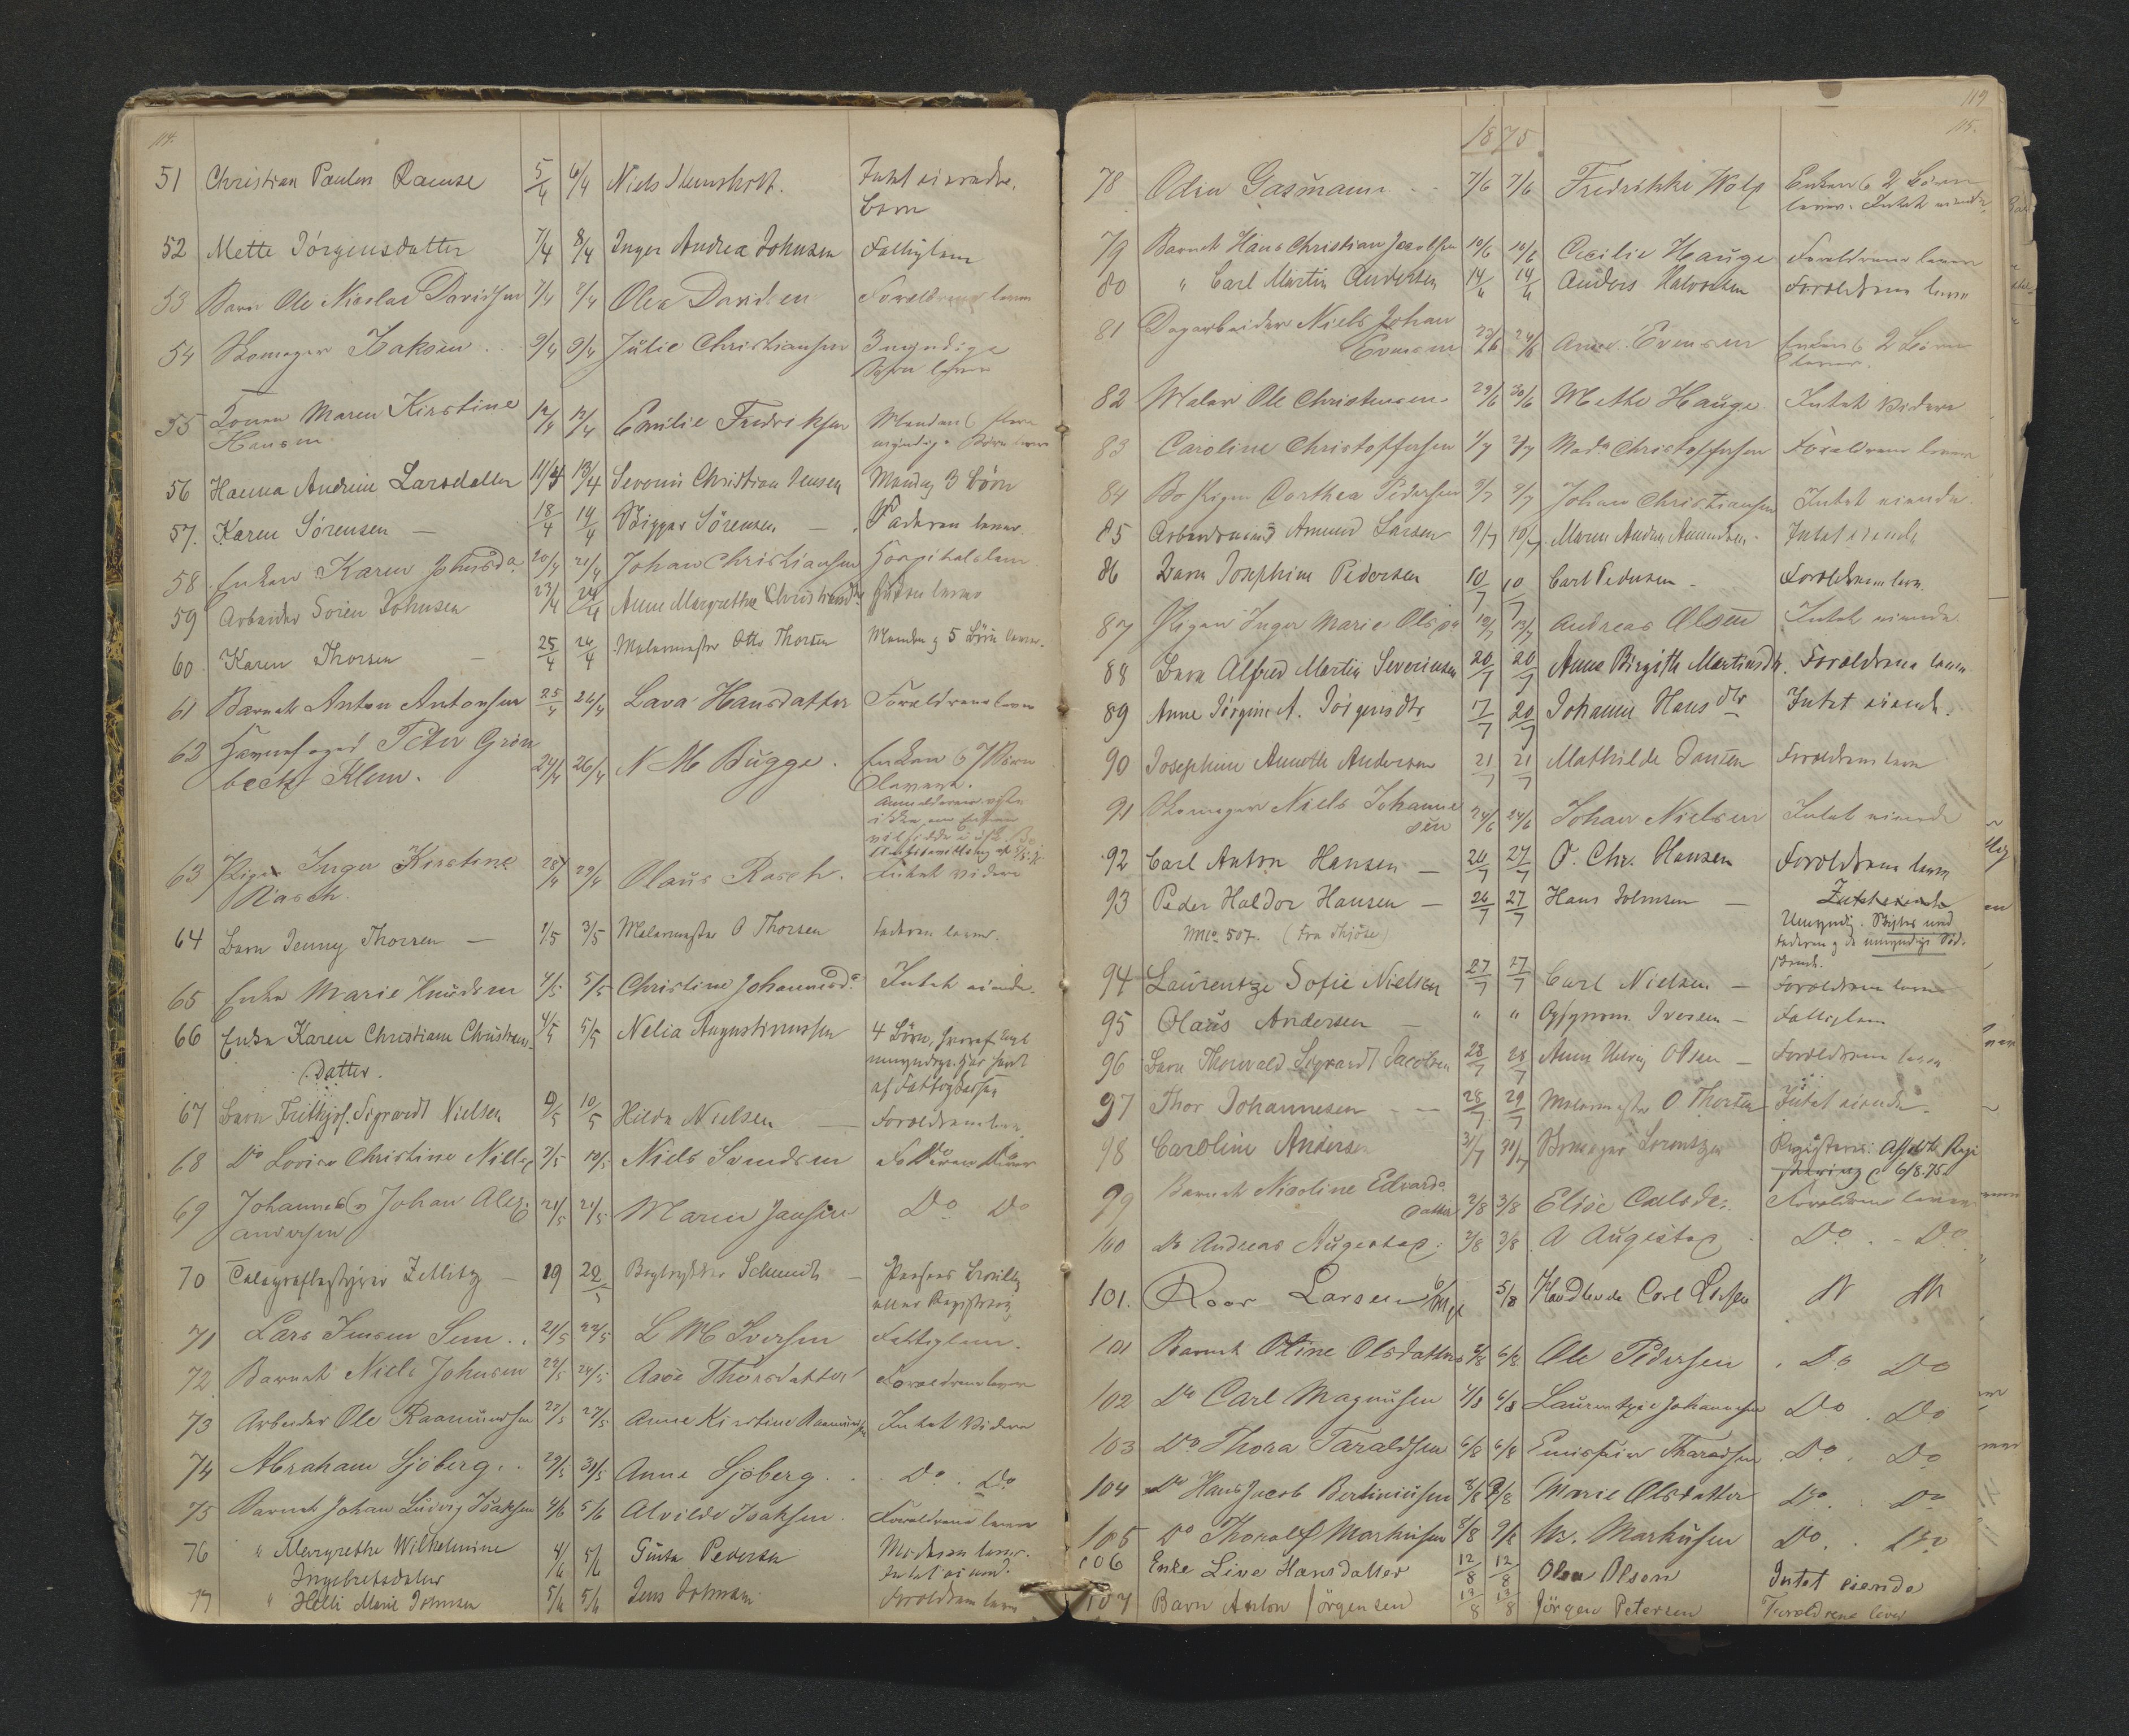 114.
51 Christian Paulin 5/4 6/4 Niels Intet eiende.
Barn
52 Mette Jörgensdatter 7/4 8/4 Inger Andrea Johnsen Fattiglem
53 Barn Ole Nicolai Davidsen 7/4 8/4 Olea Davidsen Forældrene lever
54 Isaksen 9/4 9/4 Julie Christiansen 3 myndige
Börn lever
55 Konen Maren Kirstine 12/4 12/4 Emilie Fredriksen Manden & flere
Hansen umyndige Börn lever
56 Hanna Andrine Larsdatter 11/4 13/4 Severin Christian Jensen Mand og 3 Börn
57. Karen Sörensen — 18/4 19/4 Sörensen — Faderen lever.
58 Enken Karen Johnsda 20/4 21/4 Johan Christiansen Hospitalslem
59 Arbeider Sören Johnsen 23/4 24/4 Anne Margrethe Enken lever
60. Karen Thorsen — 25/4 26/4 Malermester Otto Thorsen Manden og 5 Börn lever.
61 Barnet Anton Antonsen 25/4 26/4 Lava Hansdatter Forældrene lever
62 Havnefoged Peter Grön
beck Klem. 24/4 26/4 N M Bugge. Enken & 7 Börn
63 Pigen Inger Kirstine 28/4 29/4 Olaus Rasch. Intet videre
Rasch.
64 Barn Jenny Thorsen — 1/5 3/5 Malermester O Thorsen Faderen lever.
65 Enke Marie Knudsen 4/5 5/5 Christine Johannesda. Intet eiende.
66 Enke Karen Christiane Christens- 4/5 5/5 Nelia Augustinussen 4 Börn, hvoraf
Datter. af Fattigkassen
67 Barn Frithjof Sigvardt Nielsen 9/5 10/5 Hilda Nielsen — Forældrene lever
68 Do Lovise Christine Nielsen 9/5 10/5 Niels Svendsen
69 Johannes & Johan Alex. 21/5 21/5 Maren Jansen Do Do
Andersen
70 Zetlitz — 19 22/5 Bogtrykker Schmidt —
71 Lars Jensen Sem . . 21/5 22/5 L M Iversen Fattiglem.
72 Barnet Niels Johnsen 23/5 24/5 Aase Thorsdatter Forældrene lever
73 Arbeider Ole Raamundsen 27/5 27/5 Anne Kirstine Raamundsen Intet videre
74 Abraham Sjöberg . . 29/5 31/5 Anne Sjöberg . . Do . Do
75 Barnet Johan Ludvig Isaksen 4/6 5/6 Alvilde Isaksen. Forældrene lever
76 " Margrethe Wilhelmine 4/6 5/6 Gusta Pedersen Moderen lever.
Ingebretsdatter Intet eiende.
77 " Helli Marie Johnsen 5/6 5/6 Jens Johnsen Forældrene lever
119
115.
1875.
78 Odin Gasmann . . 7/6 7/6 Fredrikke Enken & 2 Börn
lever. Intet eiende.
79 Barnet Hans Christian Jacobsen 10/6 10/6 Cecilie Hauge Forældrene lever
80 " Carl Martin Andersen 14/6 14/6 Anders Halvorsen Forældrene lever
81 Dagarbeider Niels Johan
Evensen 23/6 24/6 Anne Evensen Enken & 2 Börn
lever.
82 Maler Ole Christensen 29/6 30/6 Methe Hauge. Intet videre
83 Caroline Christoffersen 1/7 2/7 Mada Christoffersen Forældrene lever
84 Dorthea Pedersen 9/7 9/7 Johan Christiansen Intet eiende.
85 Arbeidsmand Amund Larsen 9/7 10/7 Maren Andrea Amundsen. Intet eiende
86 Barn Josephine Pedersen 10/7 10/7 Carl Pedersen — Forældrene lever.
87 Pigen Inger Marie Olsda 12/7 13/7 Andreas Olsen Intet eiende.
88 Barn Alfred Martin Severinsen 20/7 20/7 Anne Birgith Martinsdtr. Forældrene lever.
89 Anne Jörgine A. Jörgensdtr 17/7 20/7 Johanne Hansdtr Intet eiende.
90 Josephine Annette Andersen 21/7 21/7 Mathilde Jansen Forældrene lever
91 Niels Johanne
sen 24/6 24/6 Johan Nielsen Intet eiende
92 Carl Anton Hansen — 26/7 27/7 O. Chr. Hansen Forældrene lever
93 Peder Haldor Hansen — 26/7 27/7 Hans Johnsen —
No 507. (Fra Tjöse) Umyndig. Skiftes med
Faderen og de umyndige
94 Laurentze Sofie Nielsen 27/7 27/7 Carl Nielsen — Forældrene lever
95 Olaus Andersen — " " Iversen — Fattiglem
96 Barn Thorvald Sigvardt Jacobsen 28/7 28/7 Anne Olsen — Forældrene lever
97 Thor Johannesen — — 28/7 29/7 Malermester O Thorsen Intet eiende.
98 Caroline Andersen 31/7 31/7 Lorentzen 6/8.75.
99 Barnet Nicoline Edvards
datter 2/8 3/8 Elise Carlsda. Forældrene lever
100 Do Andreas Augestad. 2/8 3/8 A Augestad . Do . — Do
101. Roar Larsen 5/8 Handlende Carl Larsen
101 Barnet Otine Olsdatter 5/8 6/8 Ole Pedersen . Do Do
102 Do Carl Magnussen 4/8 6/8 Laurentzie Johannesen Do . Do
103 Do Thora Taraldsen 6/8 6/8 Taraldsen . Do . Do
104 Do Hans Jacob Bertiniusen 8/8 9/8 Marie Olsdatter Do . Do
105 Do Thoralf Markusen 8/8 9/8 Markusen Do . Do
106 Enke Live Hansdatter 12/8 12/8 Olea Olsen Intet eiende
107 Barn Anton Jörgensen 13/8 13/8 Jörgen Petersen Forældrene lever